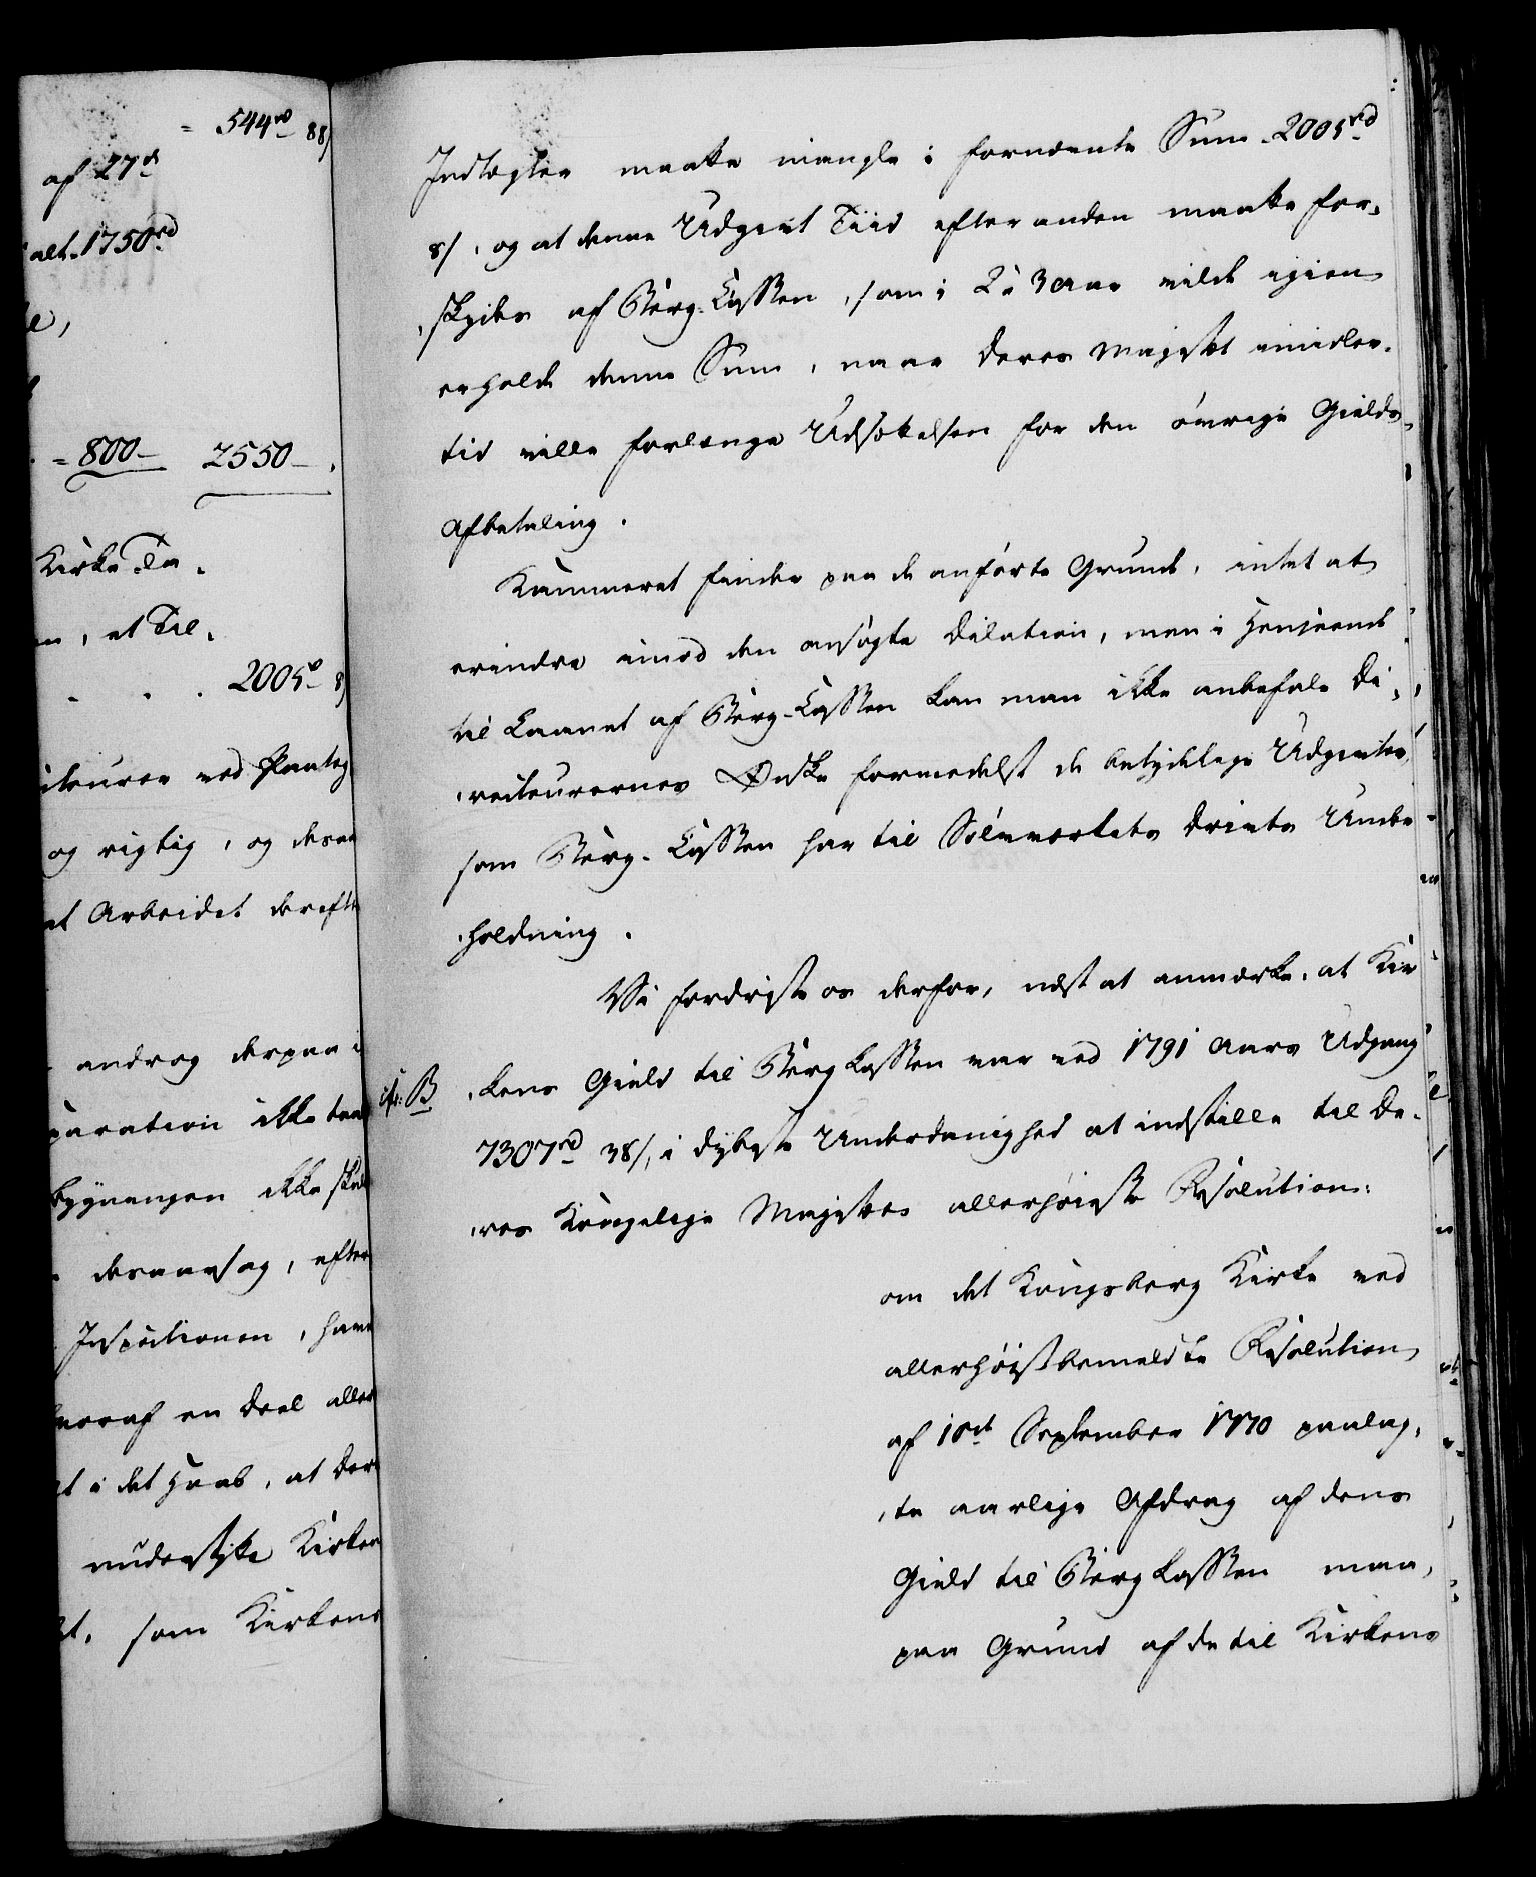 = 544rd 88/
af 27d
alt. 1750rd
= 800 – 2550 –
Kirke-Ta-
, et Til-
2005rd 8/
iteurer ved Paateg
og rigtig, og deraa
at Arbeidet derefte
androg derpaa i
paration ikke taa
bygningen ikke skul
desaarsag, efter
Inspectionen, have
hvoraf en Deel aller
i det Haab, at Der
understytte Kirken
som Kirkens
Indtægter maatte mangle i fornævnte Sum 2005rd
8/, og at denne Udgivt Tiid efter anden maatte for-
-skydes af Berg-Cassen, som i 2 à 3 Aar vilde igien
erholde denne Sum, naar Deres Majestet imidler-
tid ville forlænge Udsættelsen for den øvrige Gields
Afbetaling.
Kammeret finder paa de anførte Grunde, intet at
erindre imod den ansøgte Dilation, men i Henseende
til Laanet af Berg-Cassen kan man ikke anbefale Di-
-recteurernes Ønske formedelst de betydelige Udgivter,
som Berg-Cassen har til Sølvværkets Drivts Unde
-holdning.
Vi fordriste os derfor, næst at anmærke, at Kir
cfr: B -kens Gield til BergCassen var ved 1791 Aars Udgang
7307rd 38/, i dybeste Underdanighed at indstille til De-
-res Kongelige Majestets allerhøieste Resolution:
om det Kongsberg Kirke ved
allerhøistbemeldte Resolution
af 10de September 1770 paalag-
-te aarlige Afdrag af dens
Gield til BergCassen maa,
paa Grund af de til Kirkens